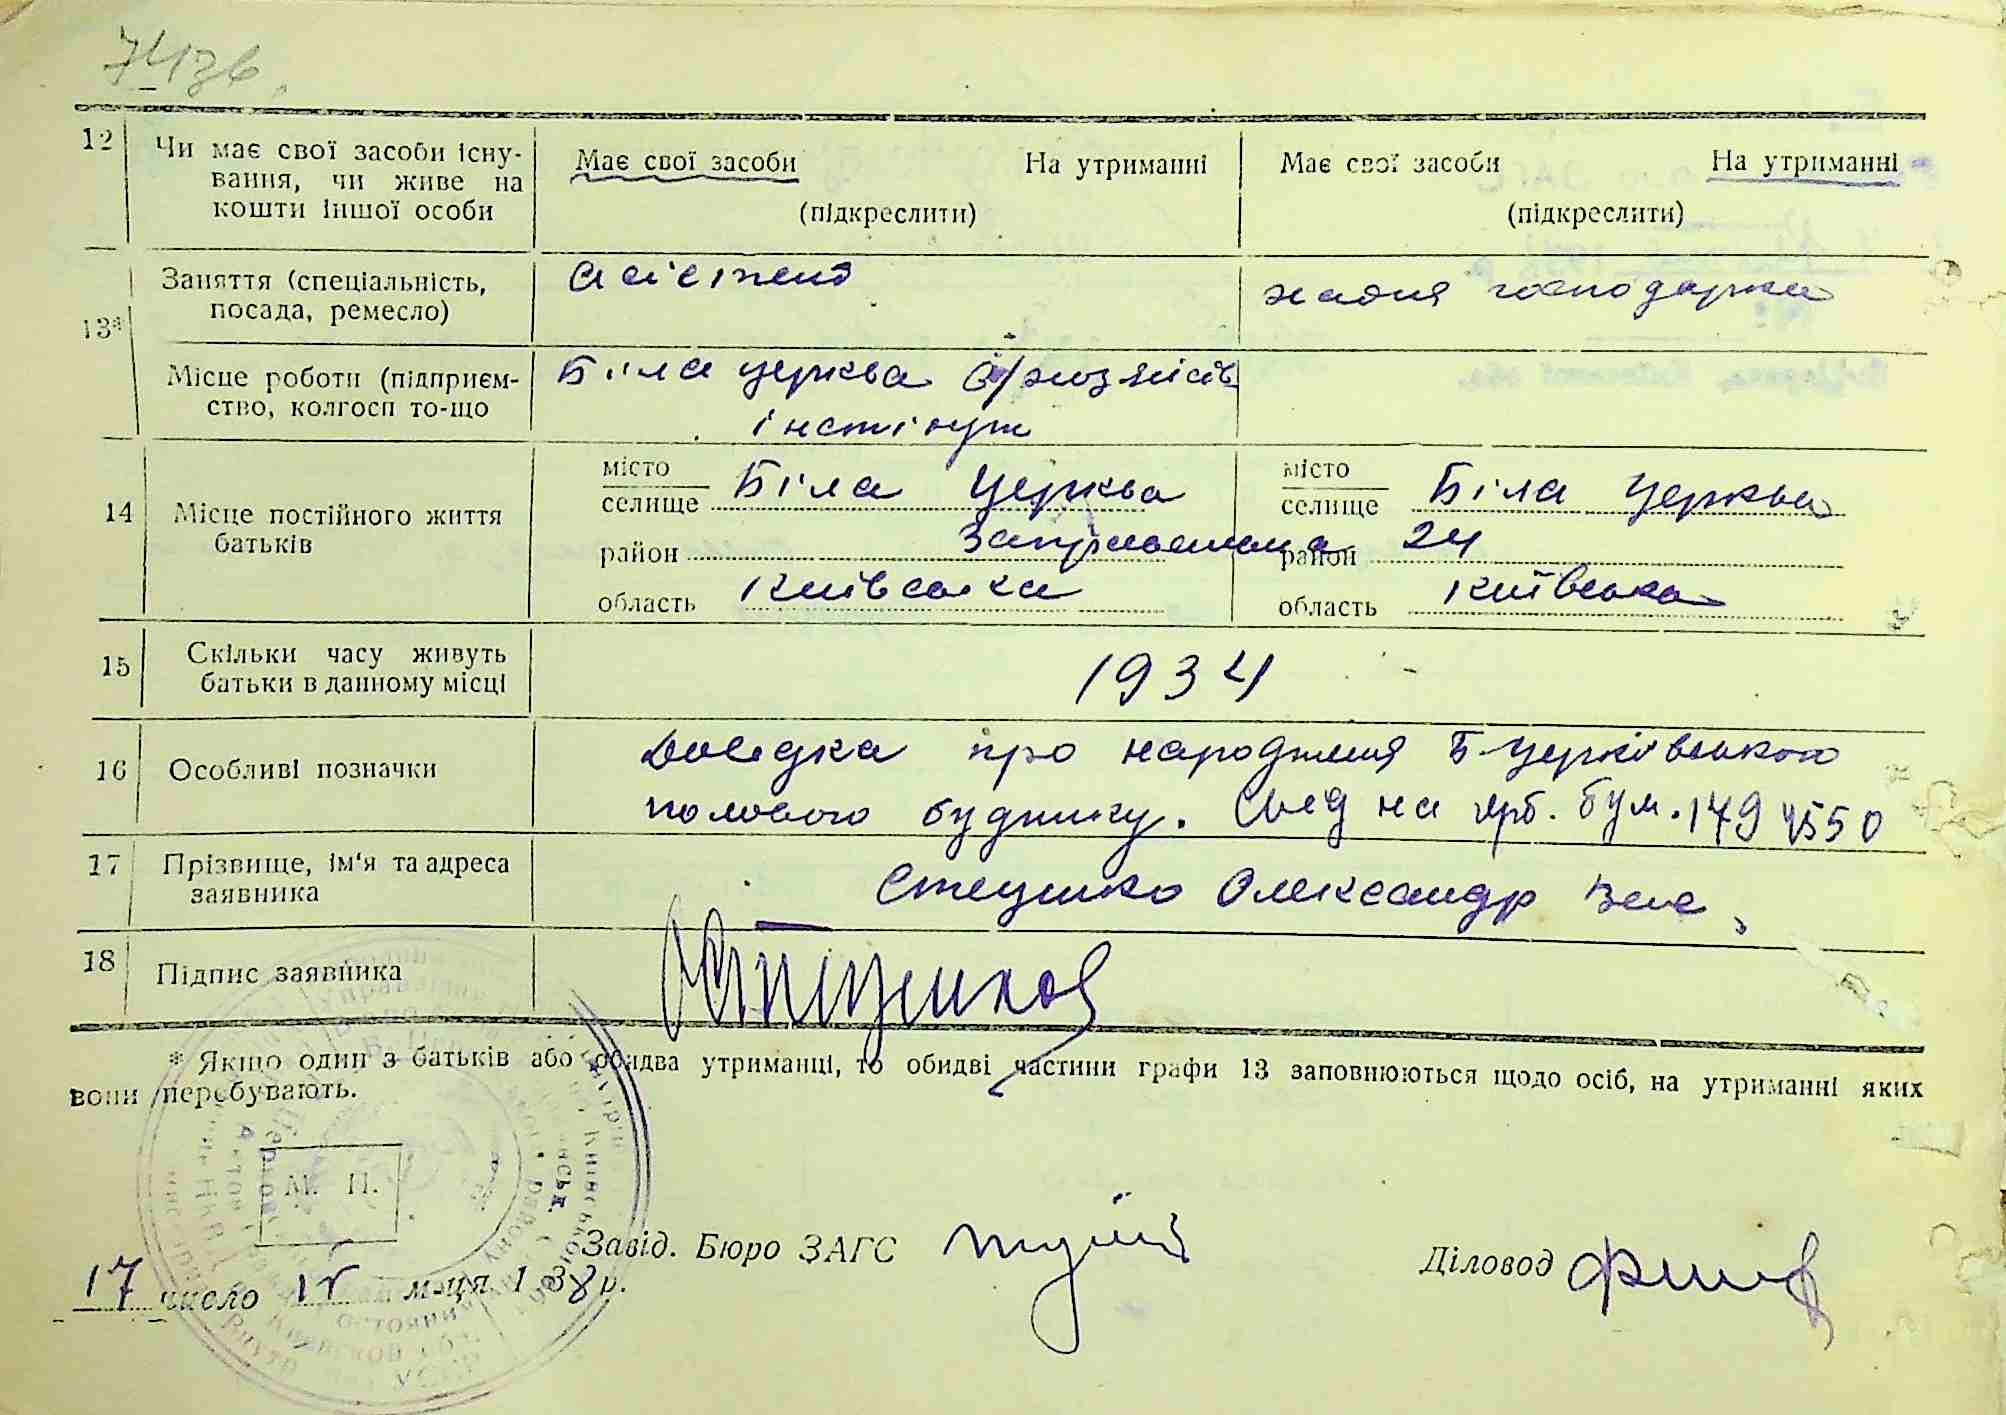 12 Чи має свої засоби існу-
вання, чи живе на
кошти іншої особи
Має свої засоби На утриманні
(підкреслити)
Має свої засоби На утриманні
(підкреслити)
13* Заняття (спеціальність,
посада, ремесло)
асістент
хатня господарка
Місце роботи (підприєм-
ство, колгосп то-що
Біла церква
інстінут
14 Місце постійного життя
батьків
місто
селище Біла Церква
район
область Київська
місто
селище Біла Церква
район 24
область Київська
15 Скільки часу живуть
батьки в данному місці
1934
16 Особливі позначки
Довідка про народження Б-Церківського
полового будинку. Свід на герб. бум.
17 Прізвище, ім'я та адреса
заявника
Стеценко Олександр
18 Підпис заявника
* Якщо один з батьків або обидва утриманці, то обидві частини графи 13 заповнюються щодо осіб, на утриманні яких
вони перебувають.
М. П.
Завід. Бюро ЗАГС
Діловод
17 число м-ця 1 38 р.